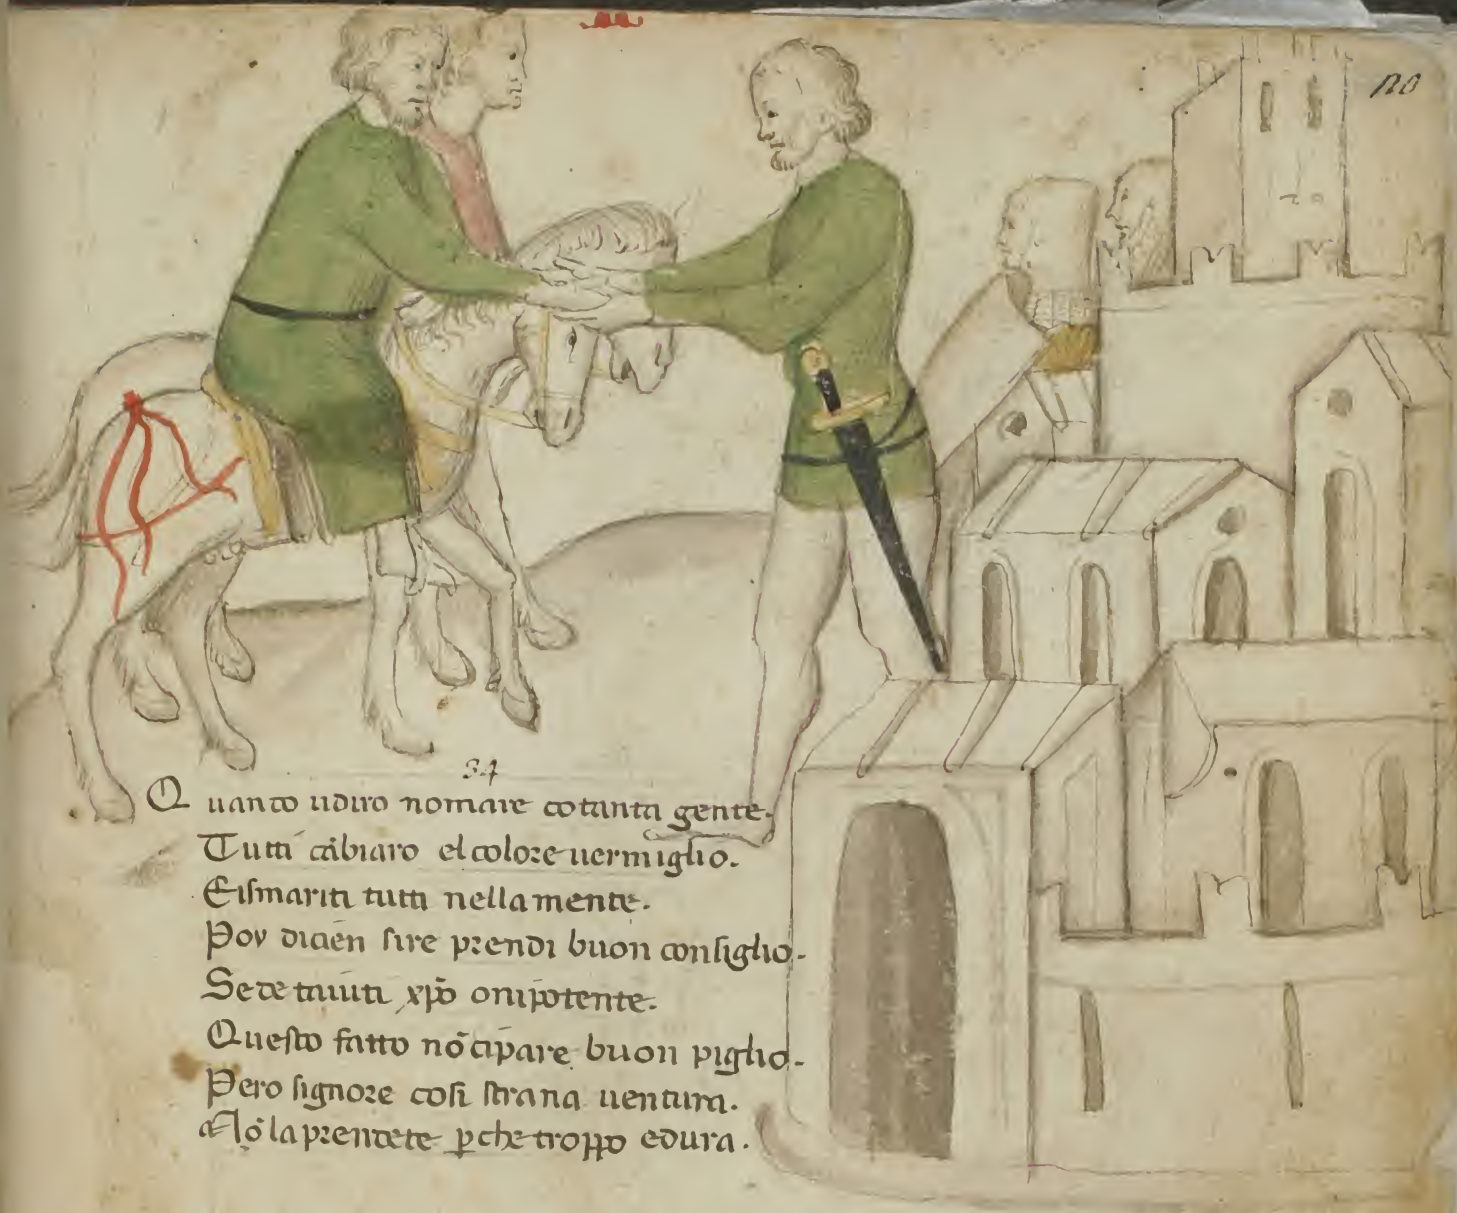 120
34
Quanto udiro nomare cotanta gente.
Tutti cābiaro el colore uermiglio.
Eiſmariti tutti nella mente.
Poy dicien ſire prendi buon conſiglio.
Se te taiuti xp̄o onipotente.
Queſto fatto nō cipare buon piglio.
Pero ſignore coſi ſtrana uentura.
Nō la prentete ꝑche troppo edura.